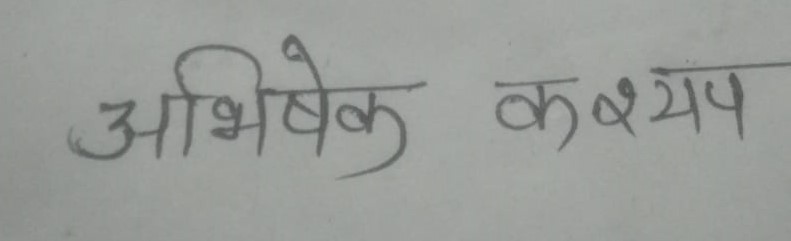 अभिषेक कश्यप